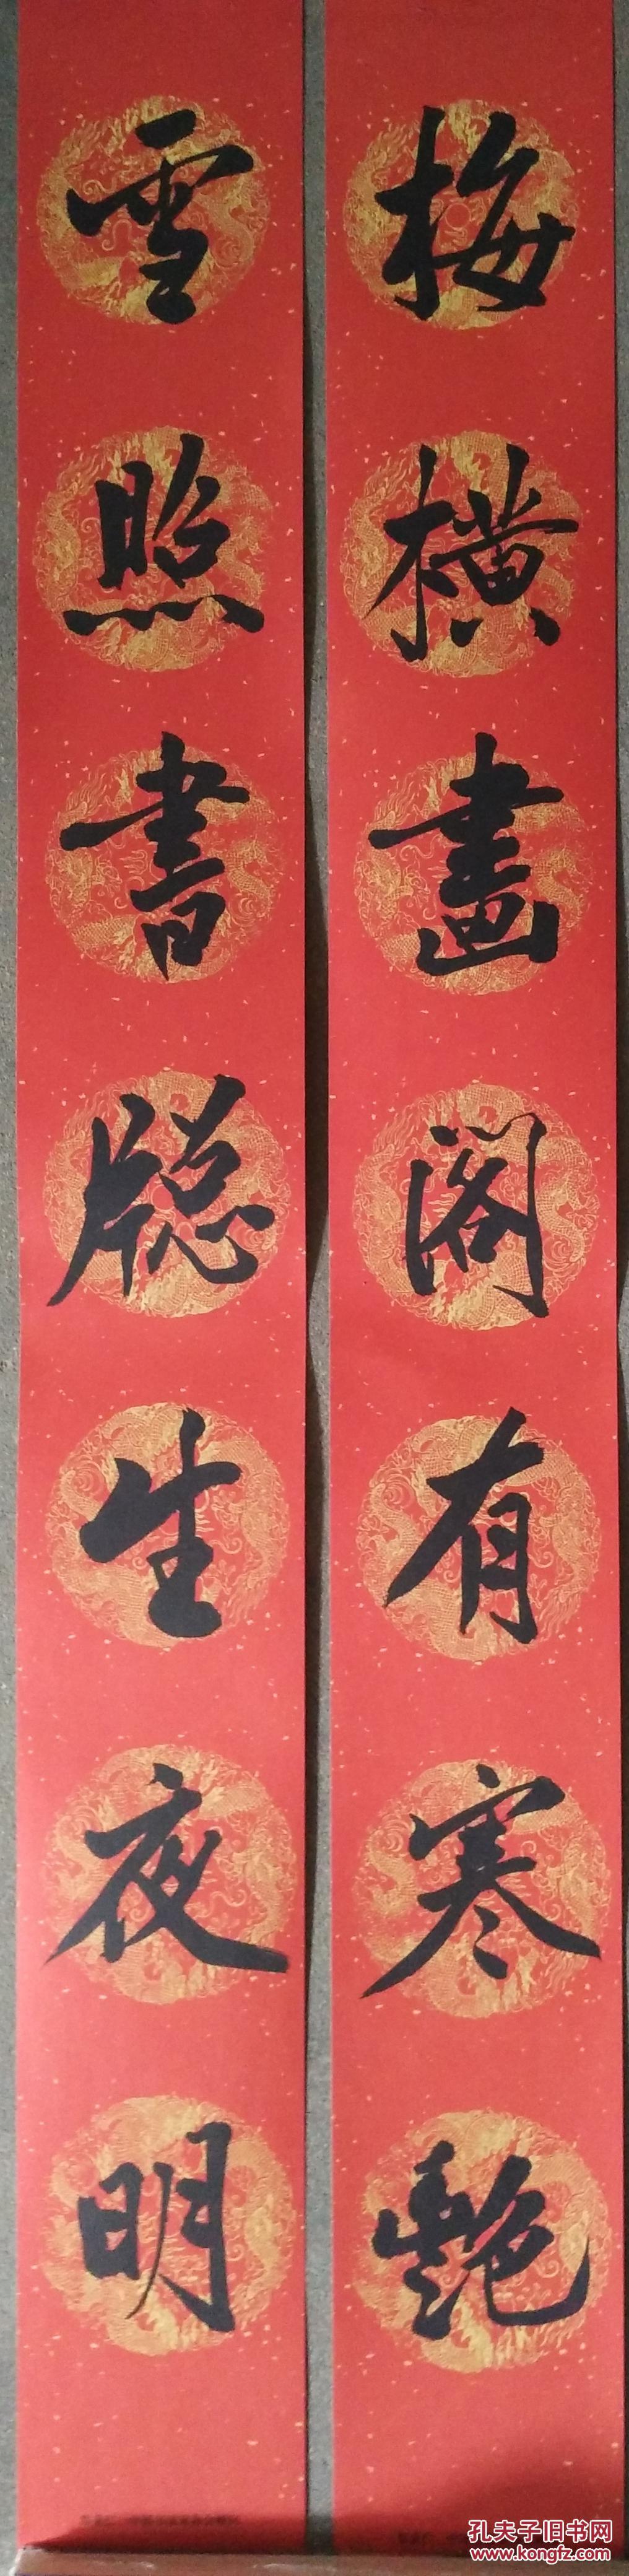 梅橫畫閣有寒艷
雪照書牕生夜明
孔夫子旧书网
www.kongfz.com